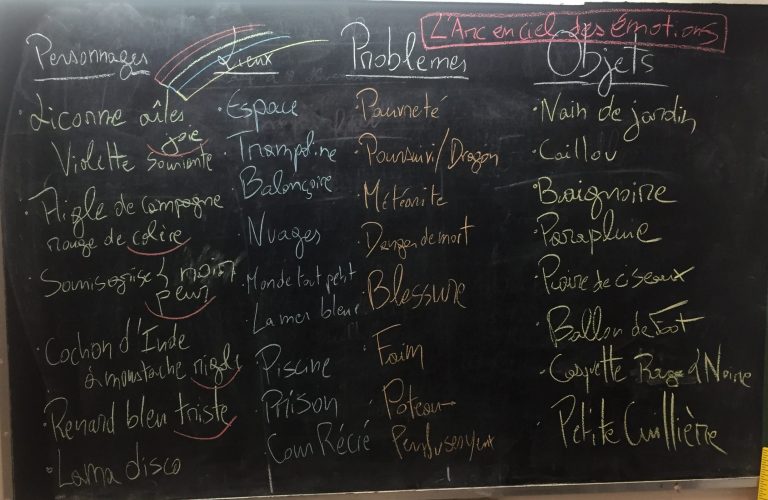 L'Arc en ciel des émotions
Personnages
Licorne aîles
joie
Violette souriante
Aigle de campagne
rouge de colère
Souris grise & noire
peur
Cochon d'Inde
à moustache rigolo
Renard bleu triste
Lama disco
Lieux
Espace
Trampoline
Balançoire
Nuages
Monde tout petit
La mer bleue
Piscine
Prison
Cour Récré
Problemes
Pauvreté
Poursuivi/Dragon
Météorite
Danger de mort
Blessure
Faim
Poteau
Perdu ses yeux
Objets
Nain de jardin
Caillou
Baignoire
Parapluie
Paire de ciseaux
Ballon de Foot
Casquette Rouge & Noire
Petite Cuillière